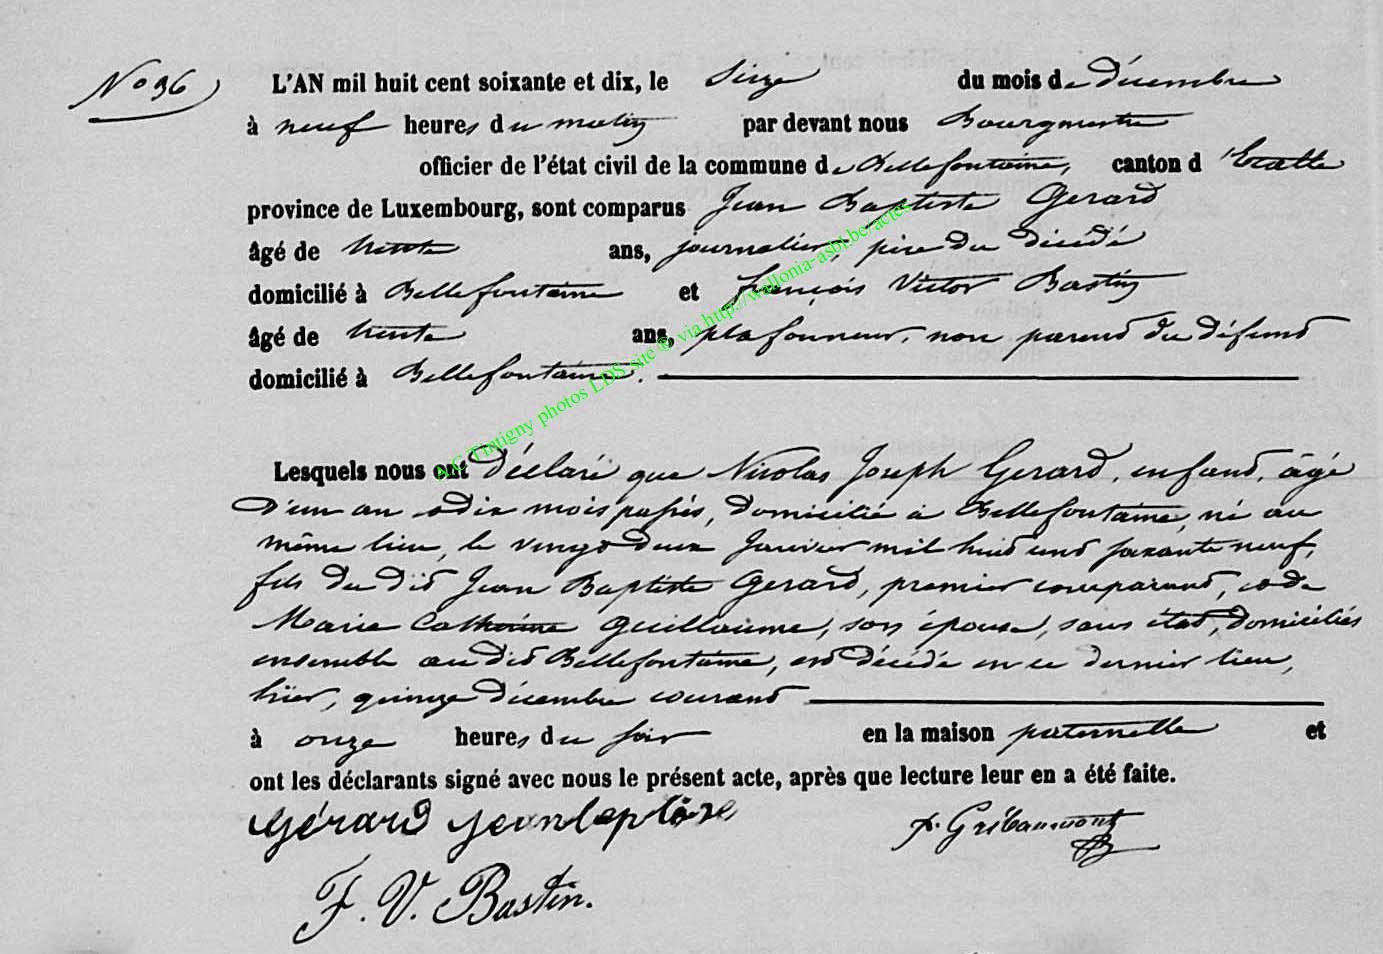 N° 36
L'AN mil huit cent soixante et dix, le Seize du mois de décembre
à neuf heures du matin par devant nous Bourgmestre
officier de l'état civil de la commune de Bellefontaine, canton d'Etalle
province de Luxembourg, sont comparus Jean Baptiste Gerard
âgé de trente ans, journalier, père du décédé
domicilié à Bellefontaine et françois Victor Bastin
âgé de trente ans, plafonneur, non parent du défunt
domicilié à Bellefontaine.
A.G Tintigny photos LDS site © via http://wallonia-asbl.be/actes
Lesquels nous ont déclaré que Nicolas Joseph Gerard, enfant, âgé
d'un an et dix mois passés, domicilié à Bellefontaine, né au
même lieu, le vingt deux Janvier mil huit cent soixante neuf,
fils du dit Jean Baptiste Gerard, premier comparant, et de
Marie Catherine Guillaume, son épouse, sans état, domiciliés
ensemble au dit Bellefontaine, est décédé en ce dernier lieu,
hier, quinze décembre courant
à onze heures du soir en la maison paternelle et
ont les déclarants signé avec nous le présent acte, après que lecture leur en a été faite.
Gérard Jeanbaptiste Gribaumont
F. V. Bastin.